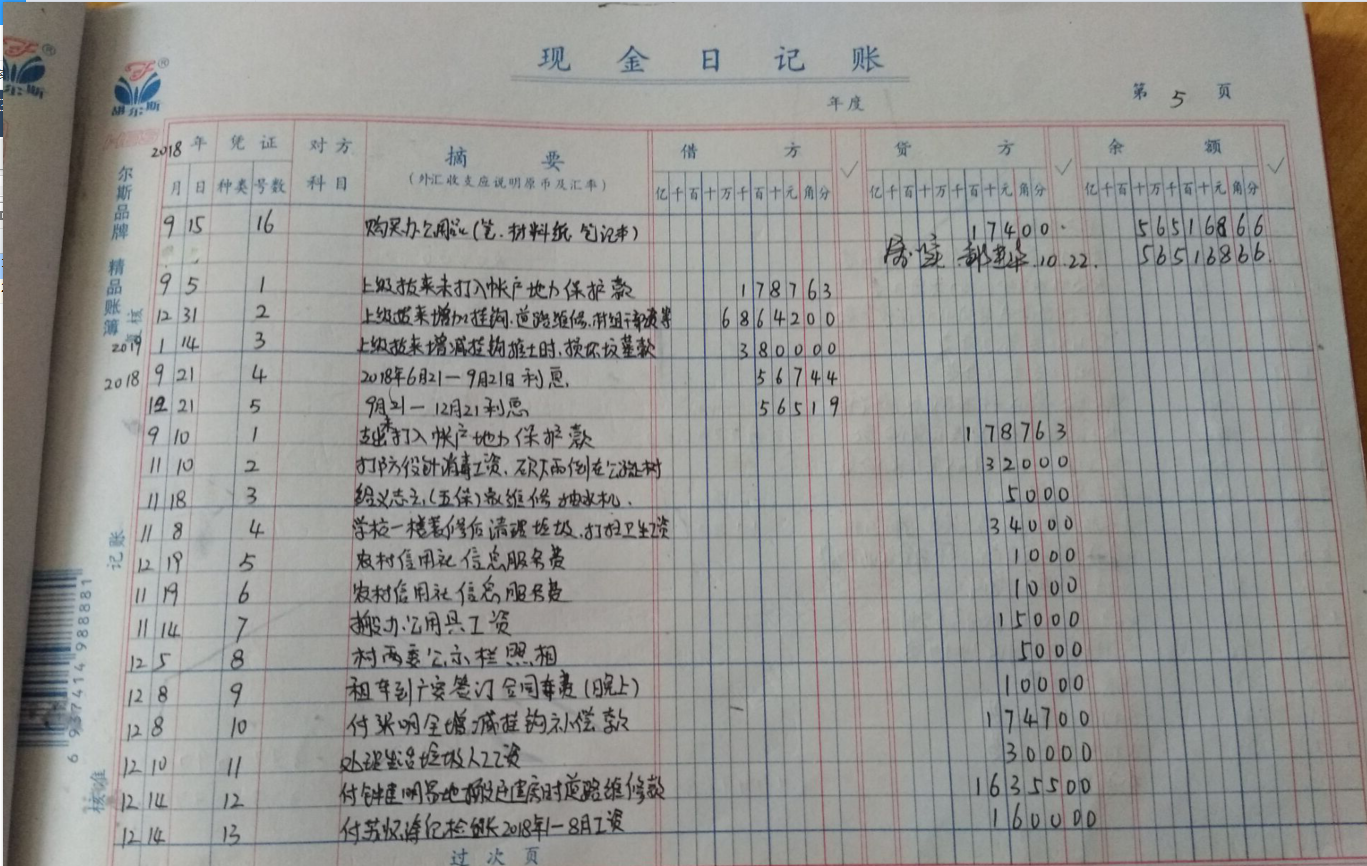 现金日记账
年度
第 5 页
2018 年 凭证 对方 摘要 借方 ✓ 贷方 ✓ 余额 ✓
月 日 种类 号数 科目 (外汇收支应说明原币及汇率) 亿千百十万千百十元角分 亿千百十万千百十元角分 亿千百十万千百十元角分
9 15 16 购买办公用品(笔、材料纸 笔记本) 17400 56516866
10.22. 56516866
9 5 1 上级拨来未打入帐户地力保护款 178763
12 31 2 上级拨来增加挂钩.道路维修.村组干部 6864200
2019 1 14 3 上级拨来增减挂钩推土时.损坏坟墓款 380000
2018 9 21 4 2018年6月21—9月21日利息. 56744
12 21 5 9月21— 12月21利息 56519
9 10 1 支出未打入帐户地力保护款 178763
11 10 2 消毒工资. 32000
11 18 3 (五保) 维修抽水机. 5000
11 8 4 学校一楼装修后清理垃圾.打扫卫生工资 34000
12 19 5 农村信用社信息服务费 1000
11 19 6 农村信用社信息服务费 1000
11 14 7 搬办公用具工资 15000
12 5 8 村两委公示栏照相 5000
12 8 9 租车到广安签订合同车费(晚上) 10000
12 8 10 付 明全增减挂钩补偿款 174700
12 10 11 处理生活垃圾人工工资 30000
12 14 12 付钟建明 建房时道路维修款 1635500
12 14 13 付苏 2018年1—8月工资 160000
过次页
胡尔斯 ®
尔斯品牌 精品账簿
复核
记账
核准
6 937414 988881